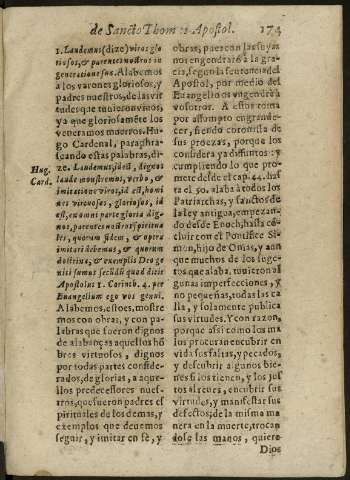 de Sancto Thoma Apostol. 174
1. Laudemus (dize) viros glo
riosos, & parentes nostros in
generatione sua. Alabemos
a los varones gloriosos, y
padres nuestros, de las vir
tudes que tuuieron vinos,
ya que gloriosamẽte los
veneramos muertos. Hu-
go Cardenal, paraphra-
seando estas palabras, di-
ze. Laudemus, id est, dignos
laude monstremus, verbo, &
imitatione viros, id est, homi
nes virtuosos, gloriosos, id
est, ex omni parte gloria dig-
nos, parentes nostros spiritua
les, quorum fidem, & opera
imitari debemus, & quorum
doctrina, & exemplis Deo ge
niti sumus secũdũ quod dicit
Apostolus 1. Corinth. 4. per
Euangelium ego vos genui.
Alabemos, esto es, mostre
mos con obras, y con pa-
labras que fueron dignos
de alabanças aquellos hõ
bres virtuosos, dignos
por todas partes conside-
rados, de glorias, a aque-
llos predecessores nues-
tros, que fueron padres es
pirituales de los demas, y
exemplos que deuemos
seguir, y imitar en fè, y
Hug.
Card.
obras, para con las suyas
nos engendrarõ a la gra-
cia, segun la sentencia del
Apostol, por medio del
Euangelio os engendrè a
vosotros. A estos toma
por assumpto engrande-
cer, siendo coronista de
sus proezas, porque los
considera ya difuntos: y
cumpliendo lo que pro-
mete desde el cap. 44. has
ta el 50. alaba a todos los
Patriarchas, y sanctos de
la ley antigua, empezan-
do desde Enoch, hasta cõ
cluir con el Pontifice Si-
mon, hijo de Onias, y aun
que muchos de los suge-
tos que alaba, tuuieron al
gunas imperfecciones, y
no pequeñas, todas las ca
lla, y solamente publica
sus virtudes. Y con razon,
porque assi como los ma
los procuran encubrir en
vida sus faltas, y pecados,
y descubrir algunos bie-
nes si los tienen, y los jus
tos al reues, encubrir sus
virtudes, y manifestar sus
defectos; de la misma ma
nera en la muerte, trocan
dose las manos, quiere
Dios